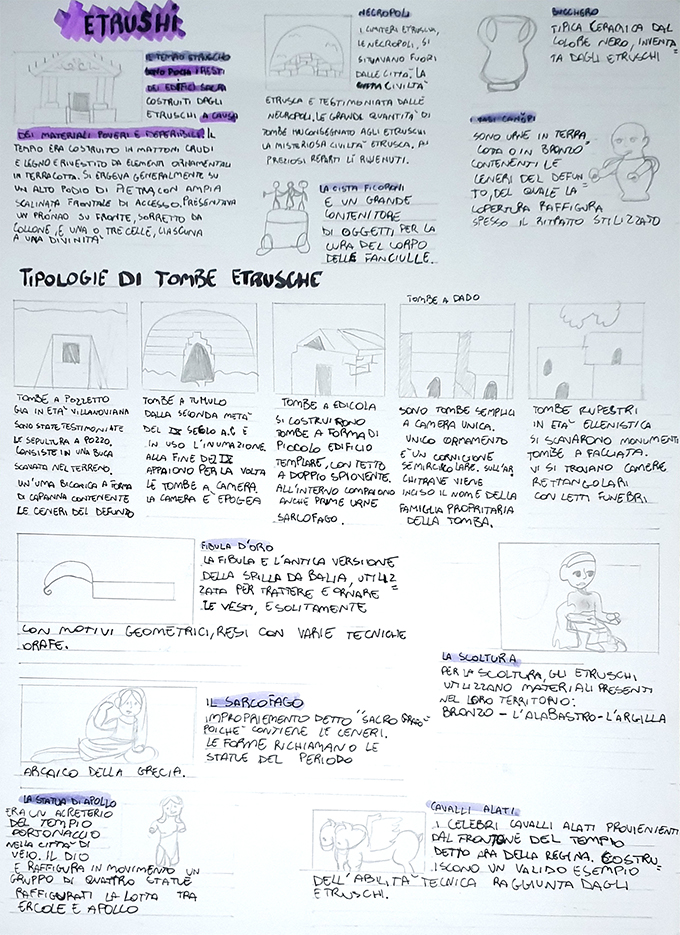 ETRUSHI
IL TEMPIO ETRUSCHO
SONO POCHI I RESTI
DEI EDIFICI SACRI
COSTRUITI DAGLI
ETRUSCHI A CAUSA
DEI MATERIALI POVERI E DEPERIBILI. IL
TEMPIO ERA COSTRUITO IN MATTONI CRUDI
E LEGNO E RIVESTITO DA ELEMENTI ORNAMENTALI
IN TERRACOTTA. SI ERGEVA GENERALMENTE SU
UN ALTO PODIO DI PIETRA CON AMPIA
SCALINATA FRONTALE DI ACCESSO. PRESENTAVA
UN PRONAO SU FRONTE, SORRETTO DA
COLLONE, E UNA O TRE CELLE, CIASCUNA
A UNA DIVINITA'
NECROPOLI
I CIMITERI ETRUSCHI,
LE NECROPOLI, SI
SITUAVANO FUORI
DALLE CITTA'. LA
CIVILTA'
ETRUSCA E TESTIMONIATA DALLE
NECROPOLI. LE GRANDE QUANTITA' DI
TOMBE HA CONSEGNATO AGLI ETRUSCHI
LA MISTERIOSA CIVILTA' ETRUSCA, AI
PREZIOSI REPARTI LI RIVENUTI.
LA CISTA FICORONI
E UN GRANDE
CONTENITORE
DI OGGETTI, PER LA
CURA DEL CORPO
DELLE FANCIULLE.
BUCCHERO
TIPICA CERAMICA DAL
COLORE NERO, INVENTA=
TA DAGLI ETRUSCHI
I VASI CANOPI
SONO URNE IN TERRA
COTTA O IN BRONZO
CONTENENTI LE
CENERI DEL DEFUN
TO, DEL QUALE LA
COPERTURA RAFFIGURA
SPESSO IL RITRATTO STILIZZATO
TIPOLOGIE DI TOMBE ETRUSCHE
TOMBE A POZZETTO
GIA IN ETA' VILLANOVIANA
SONO STATE TESTIMONIATE
LE SEPULTURA A POZZO,
CONSISTE IN UNA BUCA
SCAVATA NEL TERRENO.
UN'URNA BICONICA A FORMA
DI CAPANNA CONTENENTE
LE CENERI DEL DEFUNTO
TOMBE A TUMULO
DALLA SECONDA META'
DEL IX SECOLO A.C E
IN USO L'INUMAZIONE.
ALLA FINE DEL IX
APPAIONO PER LA VOLTA
LE TOMBE A CAMERA.
LA CAMERA E' EPOGEA
TOMBE A EDICOLA
SI COSTRUIRONO
TOMBE A FORMA DI
PICCOLO EDIFICIO
TEMPLARE, CON TETTO
A DOPPIO SPIOVENTE.
ALL'INTERNO COMPAIONO
ANCHE PRIME URNE
SARCOFAGO.
TOMBE A DADO
SONO TOMBE SEMPLICI
A CAMERA UNICA.
UNICO ORNAMENTO
E' UN CORNICIONE
SEMICIRCOLARE. SULL'AR
CHITRAVE VIENE
INCISO IL NOME DELLA
FAMIGLIA PROPRITARIA
DELLA TOMBA.
TOMBE RUPESTRI
IN ETA' ELLENISTICA
SI SCAVARONO MONUMENTI
TOMBE A FACCIATA.
VI SI TROVANO CAMERE
RETTANGOLARI
CON LETTI FUNEBRI
FIBULA D'ORO
LA FIBULA E L'ANTICA VERSIONE
DELLA SPILLA DA BALIA, UTILIZ
ZATA PER TRATTERE E ORNARE=
LE VESTI, E SOLITAMENTE
CON MOTIVI GEOMETRICI, RESI CON VARIE TECNICHE
ORAFE.
LA SCOLTURA
PER LA SCOLTURA, GLI ETRUSCHI
UTILIZZANO MATERIALI PRESENTI
NEL LORO TERRITORIO:
BRONZO - L'ALABASTRO - L'ARGILLA
IL SARCOFAGO
IMPROPRIEMENTO DETTO "SACRO
POICHE' CONTIENE LE CENERI.
LE FORME RICHIAMANO LE
STATUE DEL PERIODO
ARCAICO DELLA GRECIA.
LA STATUA DI APOLLO
ERA UN ACRETERIO
DEL TEMPIO
PORTONACCIO
NELLA CITTA' DI
VEIO. IL DIO
E RAFFIGURA IN MOVIMENTO UN
GRUPPO DI QUATTRO STATUE
RAFFIGURATI LA LOTTA TRA
ERCOLE E APOLLO
CAVALLI ALATI
I CELEBRI CAVALLI ALATI PROVIENIENTI
DAL FRONTONE DEL TEMPIO
DETTO ARA DELLA REGINA. COSTRU
ISCONO UN VALIDO ESEMPIO
DELL'ABILITA' TECNICA RAGGIUNTA DAGLI
ETRUSCHI.